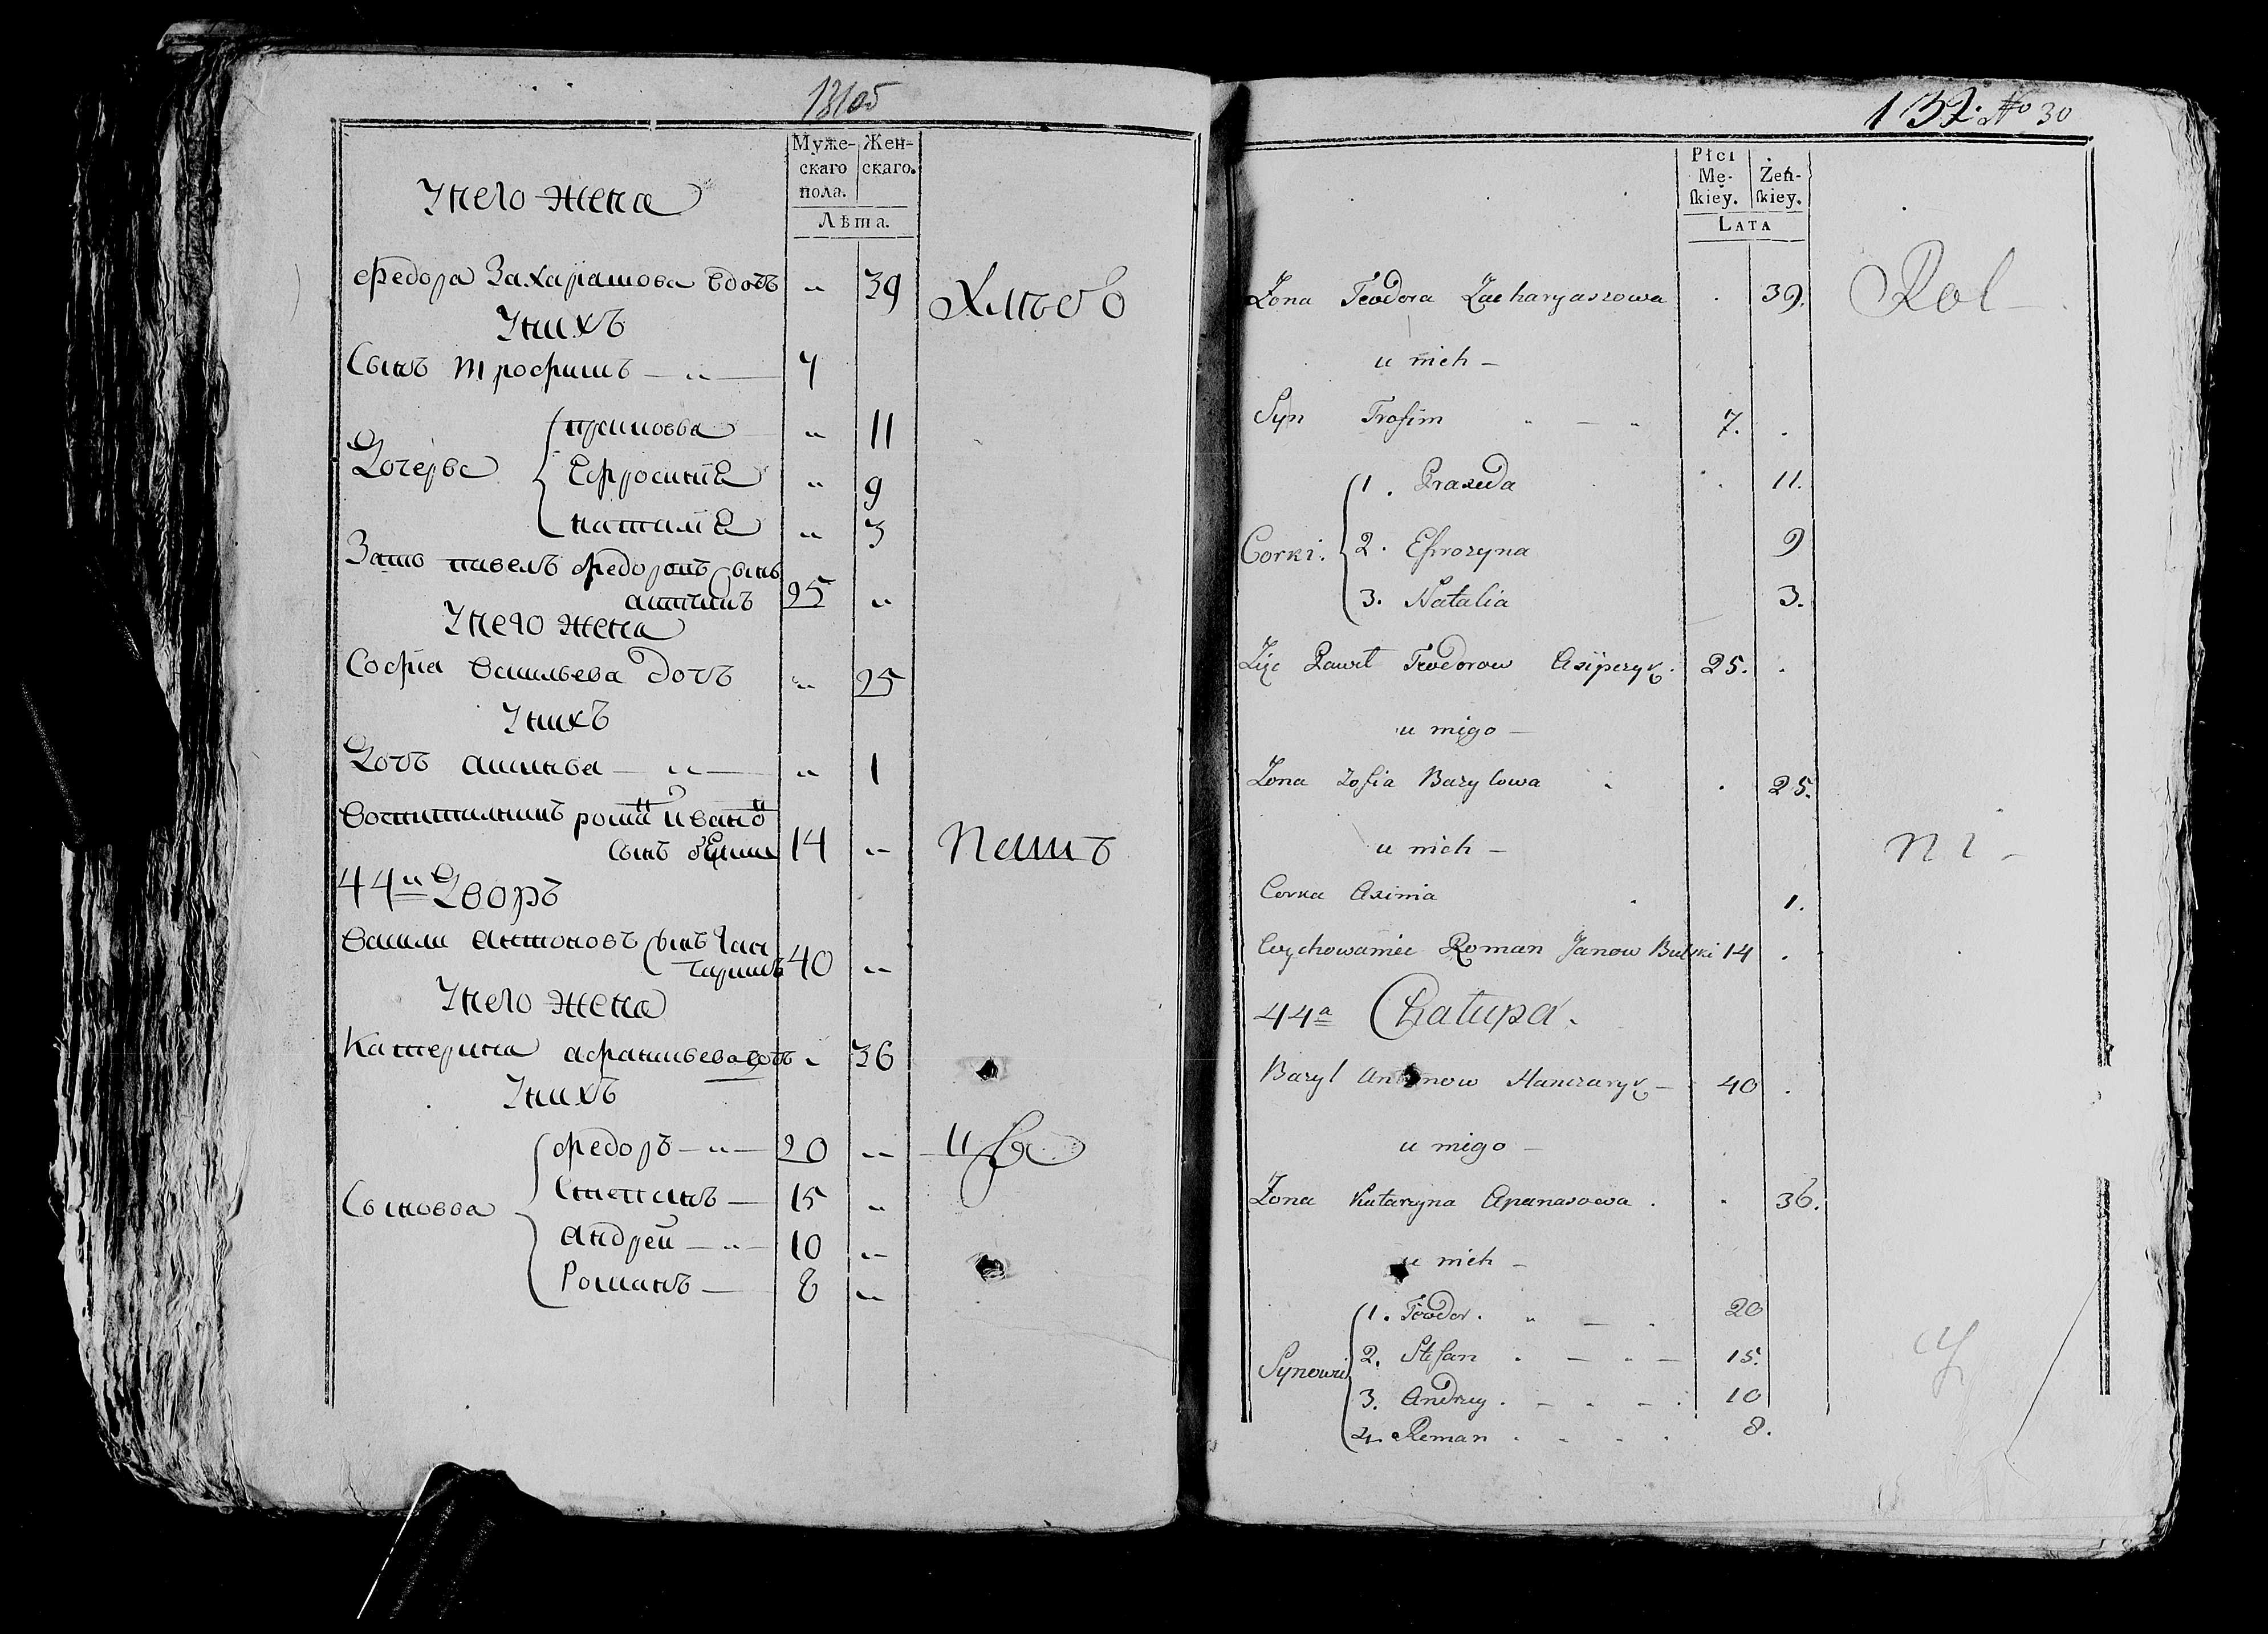 131об
Муже-
скаго
пола.
Жен-
скаго.
Лѣта.
Унего жена
Федора Захарашова вдовъ „ 39
Хлѣбо
Унихъ
Сынъ трофимъ — „ — 7
Дочерва
„ 11
Ефросинiя „ 9
наталiя „ 3
Зать павелъ федоровъ сынъ
25 „
Унего жена
Софiа василъева дочъ „ 25
Унихъ
Дочъ — „ — „ 1
рома ивано
сынъ 14 „
Пашъ
44й Дворъ
Васили антоновъ сынъ Ган
чаришъ 40 „
Унего жена
Катерина афанасьева дочъ „ 36
Унихъ
Сыновва
федоръ — „ — 20 „
Степанъ — 15 „
андрей — „ — 10 „
Романъ — 8 „
132. No 30
Płci
Mę-
ſkiey.
Żeń-
ſkiey.
LATA
Zona Teodora Zacharyaszowa . 39.
Rol –
u nich –
Syn Trofim „ – „ 7. .
Corki.
1. Praxeda . 11.
2. Efrozyna 9
3. Natalia 3.
Zięc Paweł Teodorow Asipczyk. 25. .
u niego –
Zona Zofia Bazylowa . 25.
u nich –
ni –
Corka Axinia 1.
Wychowaniec Roman Janow 14 .
44a Chałupa.
Bazyl Antonow Hanczaryk – 40 .
u niego –
Zona Katarzyna Apanasowa . . 36.
u nich –
Synowie
1. Teodor. „ – . 20
2. Stefan . – . – 15.
3. Andrzey . – . – . 10
4. Roman . . . . 8.